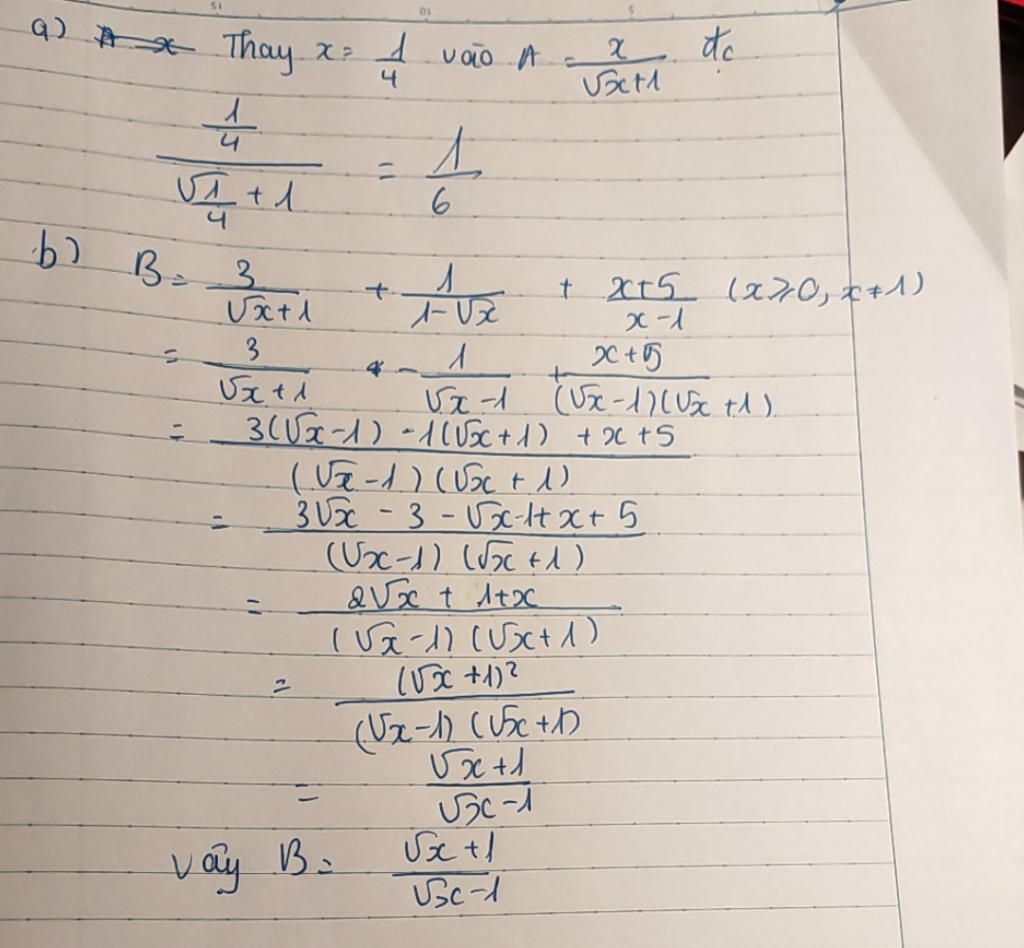 a) Thay x = 1/4 vào A = x/(√x+1) đc
(1/4)/(√1/4 + 1) = 1/6
b) B = 3/(√x+1) + 1/(1-√x) + (x+5)/(x-1) (x≥0, x≠1)
= 3/(√x+1) - 1/(√x-1) + (x+5)/((√x-1)(√x+1))
= (3(√x-1) -1(√x+1) +x+5)/((√x-1)(√x+1))
= (3√x - 3 - √x-1+x+5)/((√x-1)(√x+1))
= (2√x + 1+x)/((√x-1)(√x+1))
= (√x+1)²/((√x-1)(√x+1))
= (√x+1)/(√x-1)
Vậy B = (√x+1)/(√x-1)